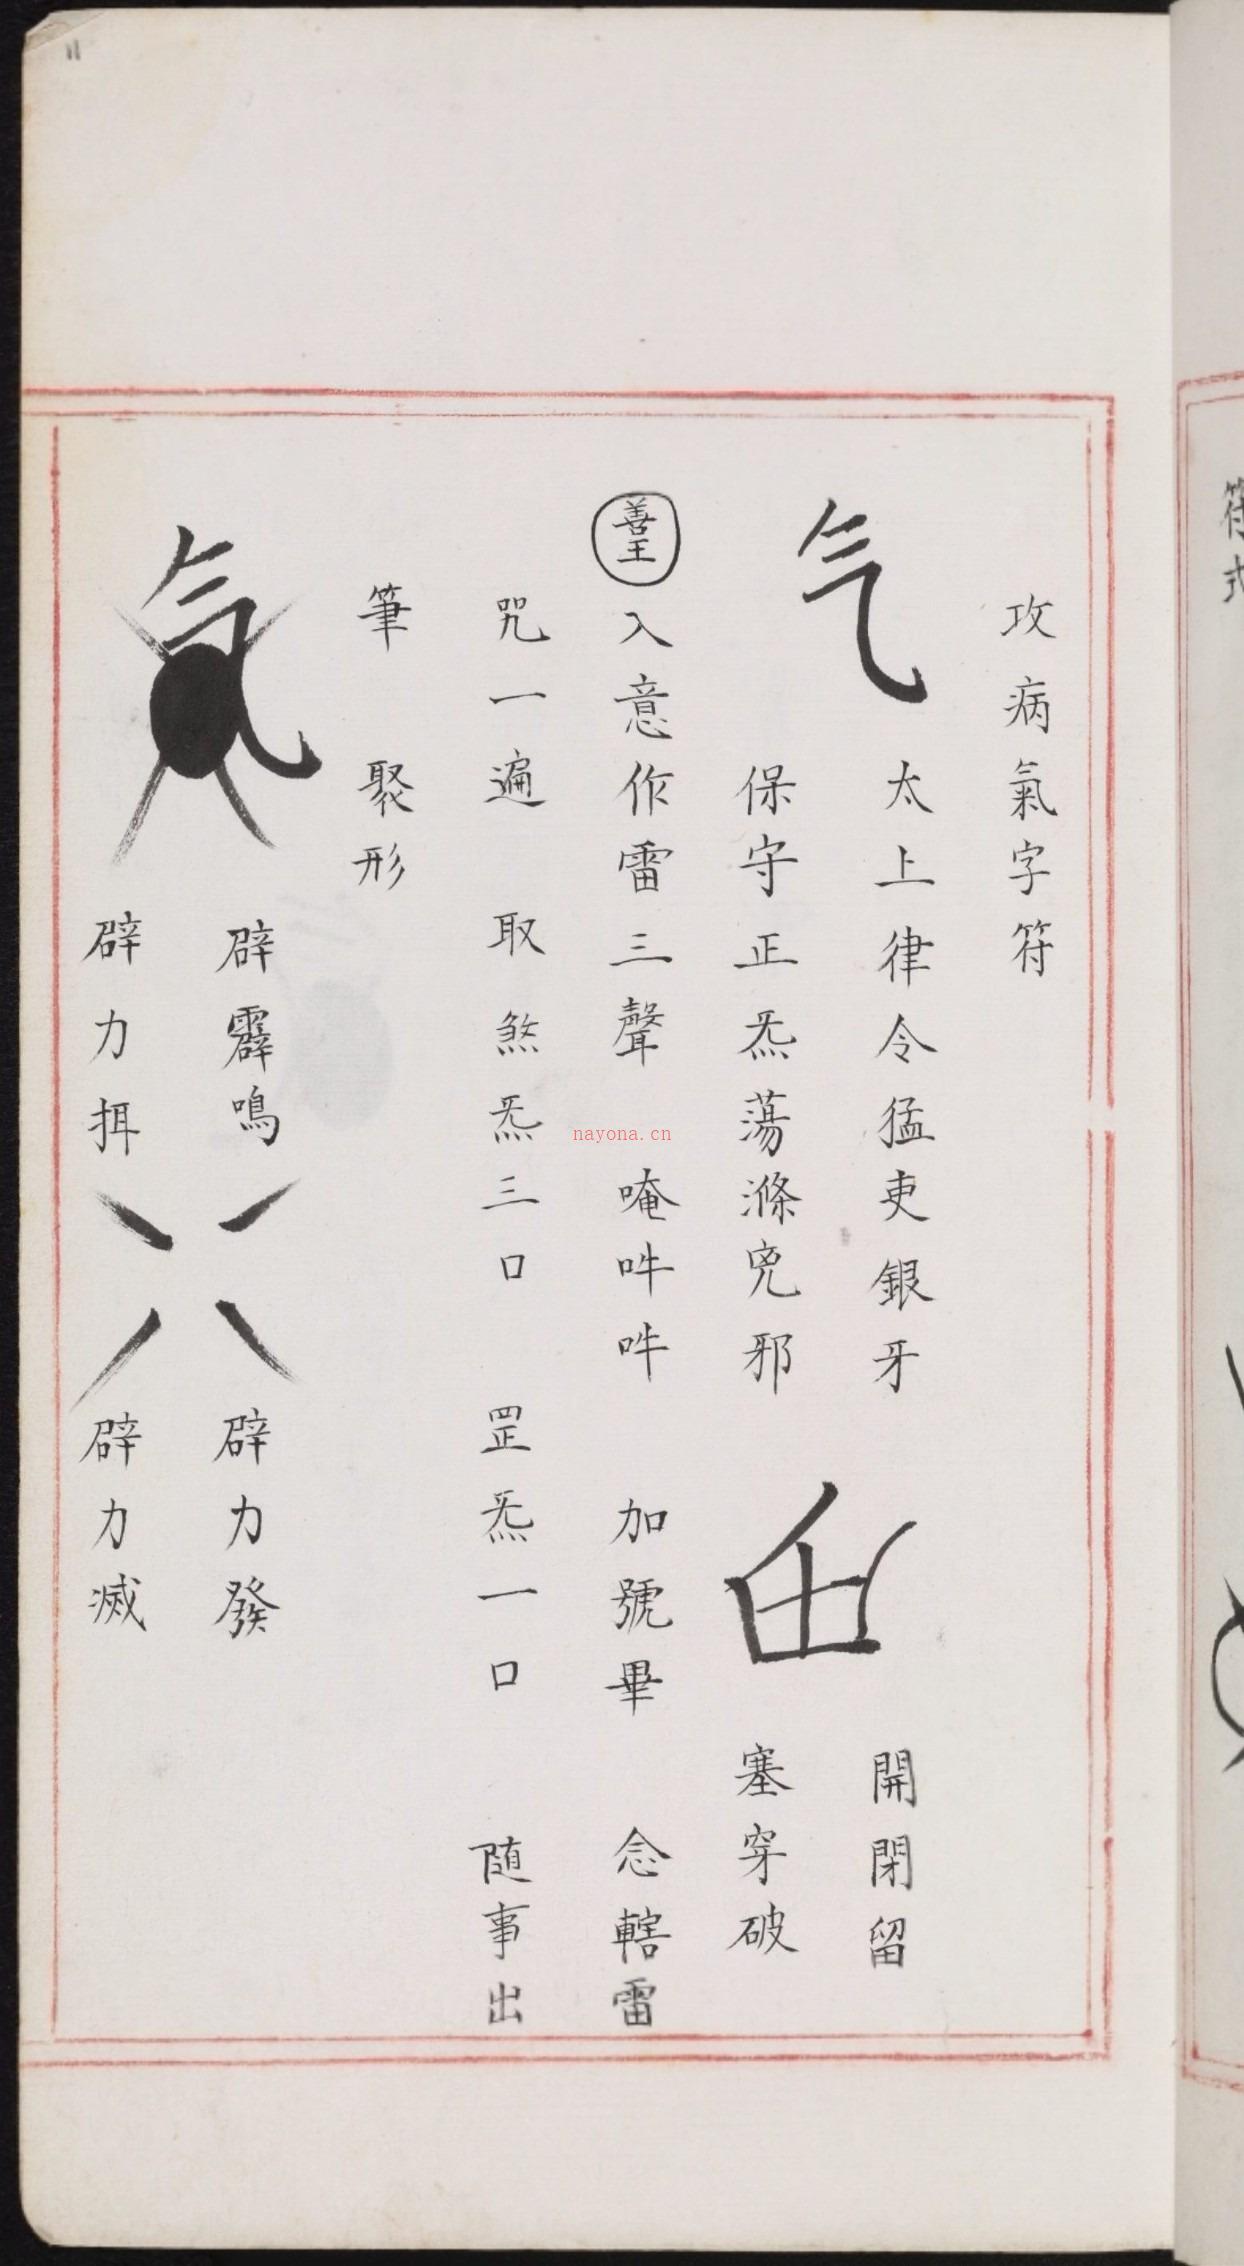 攻病氣字符
气
太上律令猛吏銀牙
保守正炁蕩滌兇邪
開閉留
塞穿破
善王
入意作雷三聲 唵吽吽 加號畢 念轄雷
咒一遍 取煞炁三口 罡炁一口 随事出
筆 聚形
气
辟靂鳴
辟力發
辟力揖
辟力滅
nayona.cn
11
符式